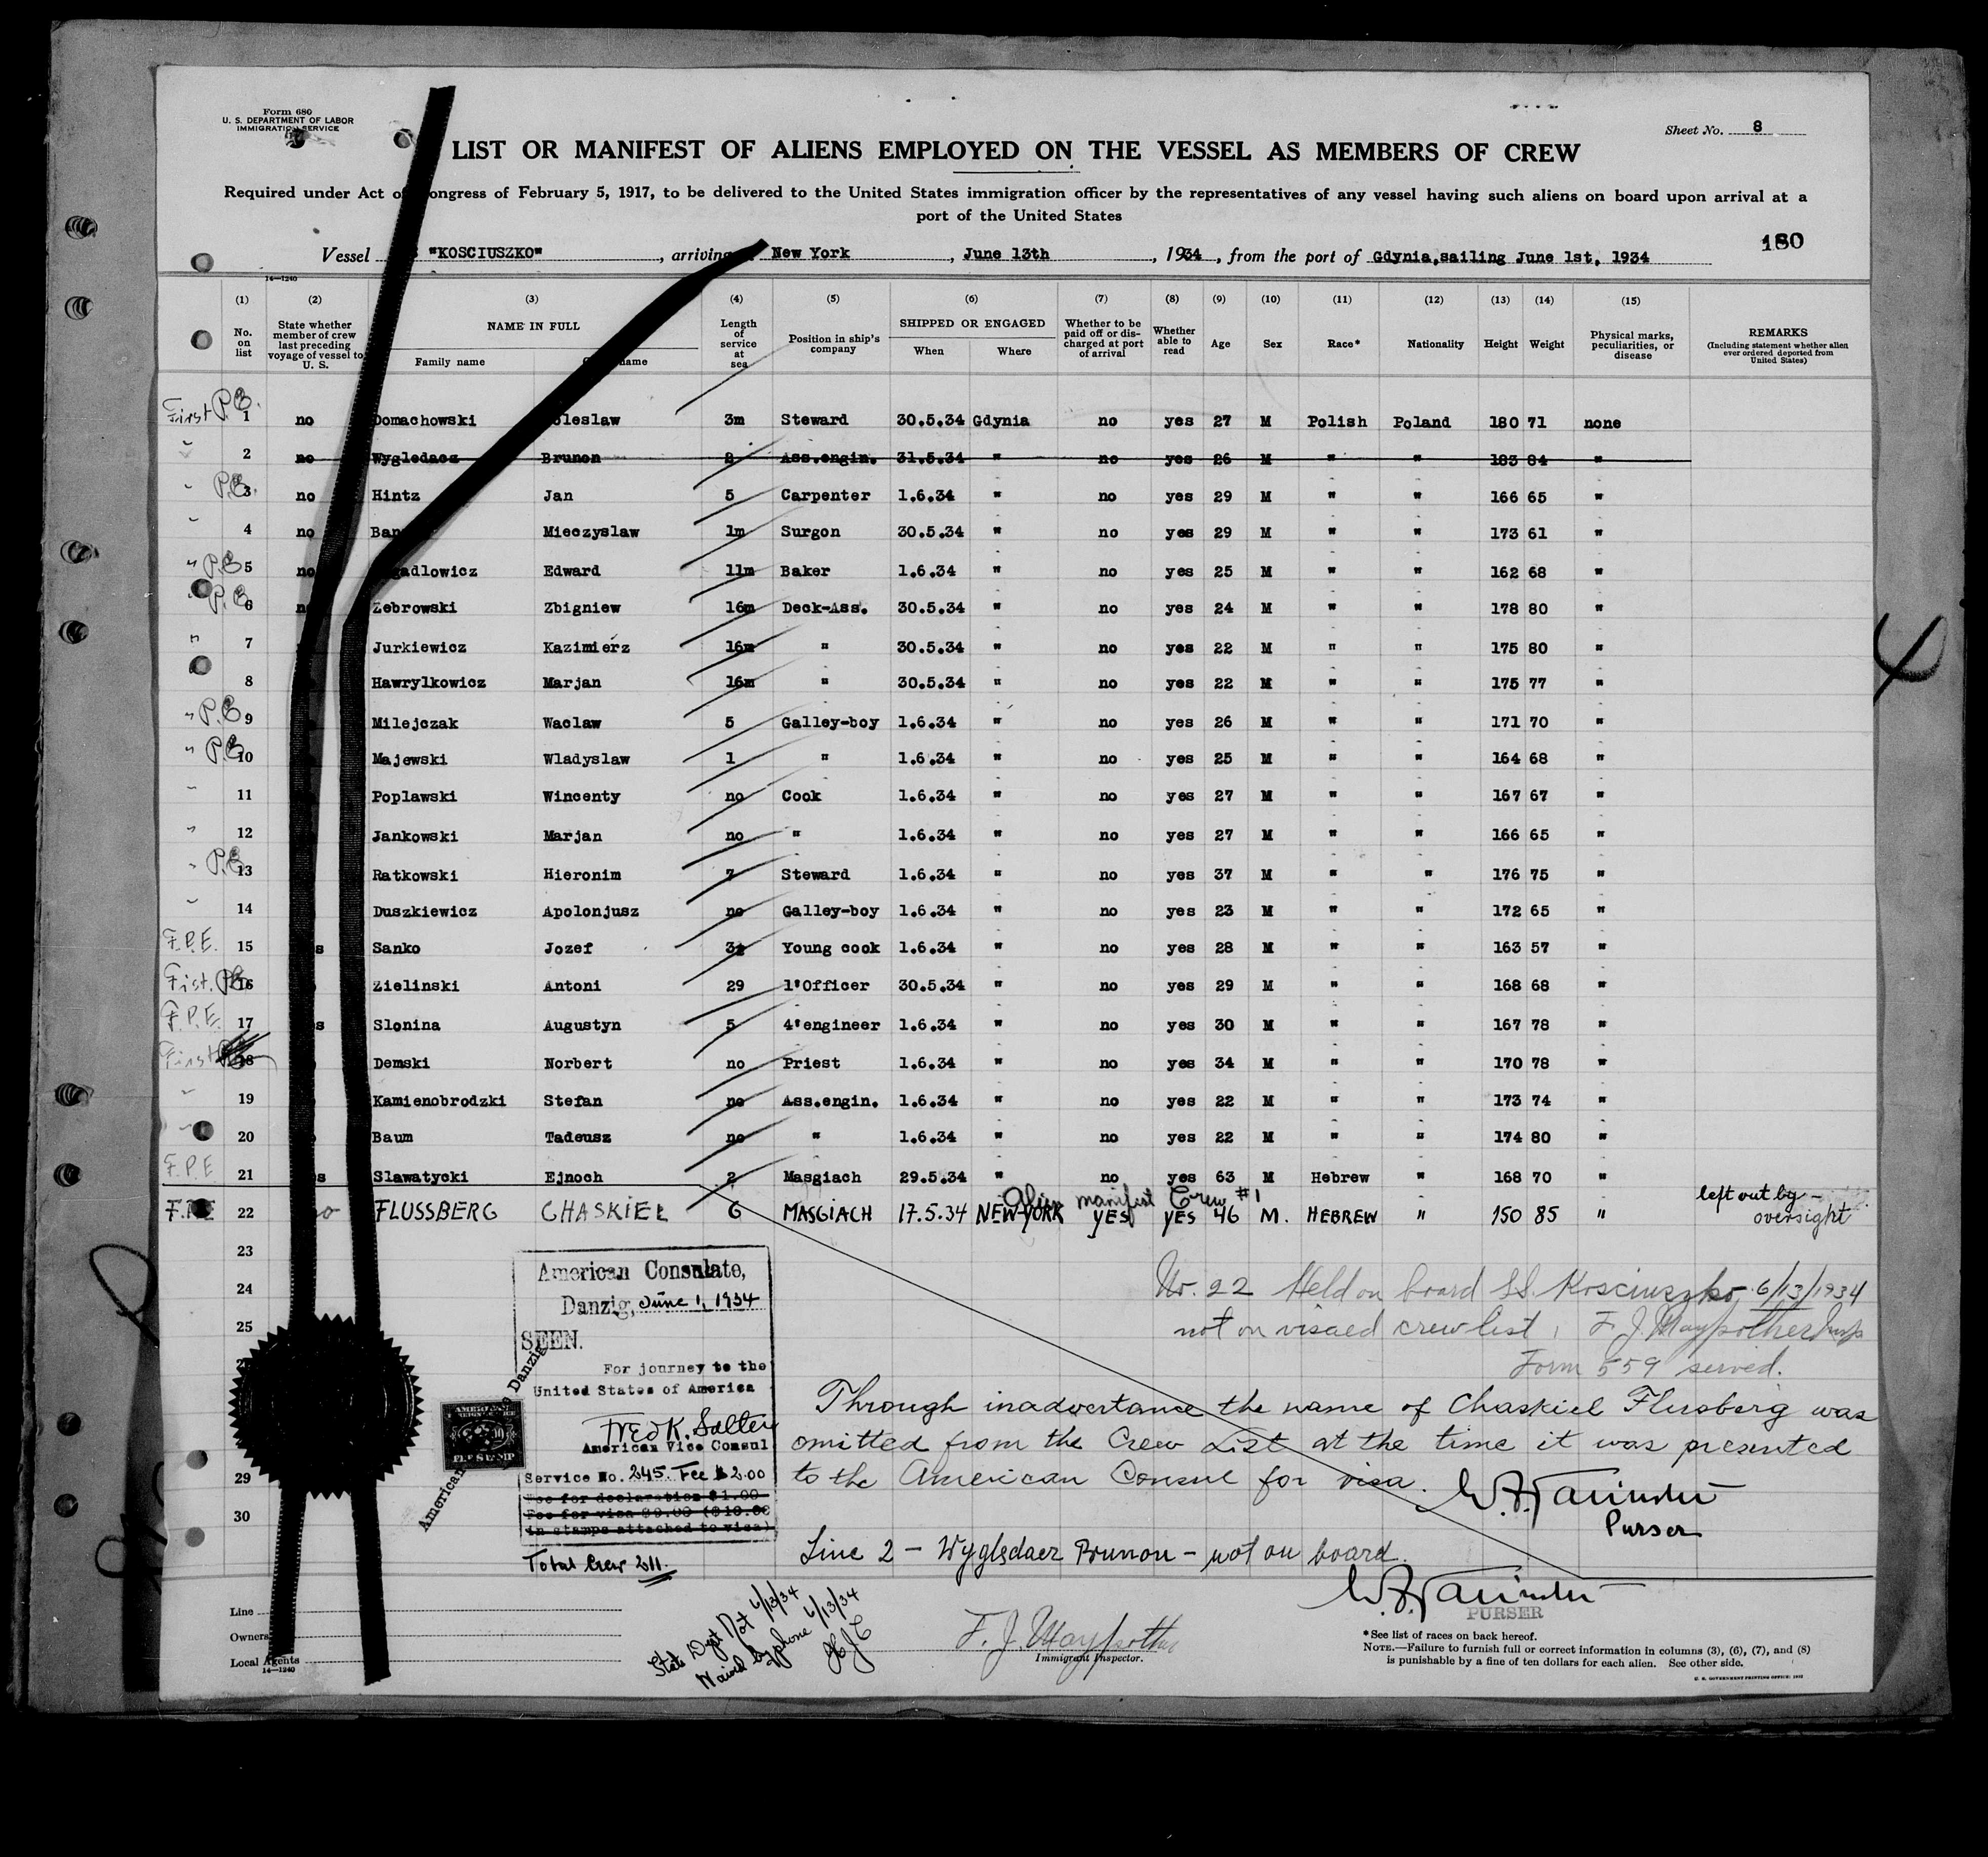 Form 680
U. S. DEPARTMENT OF LABOR
IMMIGRATION SERVICE
Sheet No. 8
LIST OR MANIFEST OF ALIENS EMPLOYED ON THE VESSEL AS MEMBERS OF CREW
Required under Act of Congress of February 5, 1917, to be delivered to the United States immigration officer by the representatives of any vessel having such aliens on board upon arrival at a
port of the United States
180
Vessel "KOSCIUSZKO", arriving New York, June 13th, 1934, from the port of Gdynia, sailing June 1st, 1934
14—1240
(1) (2) (3) (4) (5) (6) (7) (8) (9) (10) (11) (12) (13) (14) (15)
No. on list State whether member of crew last preceding voyage of vessel to U. S. NAME IN FULL Family name name Length of service at sea Position in ship's company SHIPPED OR ENGAGED When Where Whether to be paid off or discharged at port of arrival Whether able to read Age Sex Race* Nationality Height Weight Physical marks, peculiarities, or disease REMARKS (Including statement whether alien ever ordered deported from United States)
First P.E. 1 no Domachowski oleslaw 3m Steward 30.5.34 Gdynia no yes 27 M Polish Poland 180 71 none
" 2 no Wygledacz Brunon 2 Ass.engin. 31.5.34 " no yes 26 M " " 183 84 "
" P.E. 3 no Hintz Jan 5 Carpenter 1.6.34 " no yes 29 M " " 166 65 "
" 4 no Ban Mieczyslaw 1m Surgon 30.5.34 " no yes 29 M " " 173 61 "
" P.E. 5 no adlowicz Edward 11m Baker 1.6.34 " no yes 25 M " " 162 68 "
" P.E. 6 Zebrowski Zbigniew 16m Deck-Ass. 30.5.34 " no yes 24 M " " 178 80 "
" 7 Jurkiewicz Kazimierz 16m " 30.5.34 " no yes 22 M " " 175 80 "
8 Hawrylkowicz Marjan 16m " 30.5.34 " no yes 22 M " " 175 77 "
" P.E. 9 Milejczak Waclaw 5 Galley-boy 1.6.34 " no yes 26 M " " 171 70 "
" P.E. 10 Majewski Wladyslaw 1 " 1.6.34 " no yes 25 M " " 164 68 "
" 11 Poplawski Wincenty no Cook 1.6.34 " no yes 27 M " " 167 67 "
" 12 Jankowski Marjan no " 1.6.34 " no yes 27 M " " 166 65 "
" P.E. 13 Ratkowski Hieronim 7 Steward 1.6.34 " no yes 37 M " " 176 75 "
" 14 Duszkiewicz Apolonjusz no Galley-boy 1.6.34 " no yes 23 M " " 172 65 "
F.P.E. 15 s Sanko Jozef Young cook 1.6.34 " no yes 28 M " " 163 57 "
Fist. P.E. 16 Zielinski Antoni 29 1'Officer 30.5.34 " no yes 29 M " " 168 68 "
F.P.E. 17 s Slonina Augustyn 5 4'engineer 1.6.34 " no yes 30 M " " 167 78 "
First 18 Demski Norbert no Priest 1.6.34 " no yes 34 M " " 170 78 "
" 19 Kamienobrodzki Stefan no Ass.engin. 1.6.34 " no yes 22 M " " 173 74 "
" 20 Baum Tadeusz no " 1.6.34 " no yes 22 M " " 174 80 "
F.P.E 21 s Slawatycki Ejnoch 2 Masgiach 29.5.34 " no yes 63 M Hebrew " 168 70 "
Alien manifest Crew #1
F.P.E 22 no FLUSSBERG CHASKIEL 6 MASGIACH 17.5.34 NEW YORK YES YES 46 M. HEBREW " 150 85 " left out by - oversight
23
24
25
29
30
American Consulate,
Danzig, June 1, 1934
SEEN.
For journey to the
United States of America
Fred K. Salter
American Vice Consul
Service No. 245. Fee $2.00
Fee for declaration $1.00
Fee for visa $9.00 ($10.00
in stamps attached to visa)
American Danzig
AMERICAN
FEE STAMP
Total Crew 211.
No. 22 Held on board SS. Kosciuszko 6/13/1934
not on visaed crew list, F. J. Maypother Insp
Form 559 served.
Through inadvertance the name of Chaskiel Flussberg was
omitted from the Crew List at the time it was presented
to the American Consul for visa.
Purser
Line 2 - Wygledacz Brunon - not on board.
PURSER
4
Line
Owners
Local Agents
14—1240
State Dept Not 6/13/34
Waived by phone 6/13/34
F. J. Maypother
Immigrant Inspector.
*See list of races on back hereof.
NOTE.—Failure to furnish full or correct information in columns (3), (6), (7), and (8)
is punishable by a fine of ten dollars for each alien. See other side.
U. S. GOVERNMENT PRINTING OFFICE: 1932